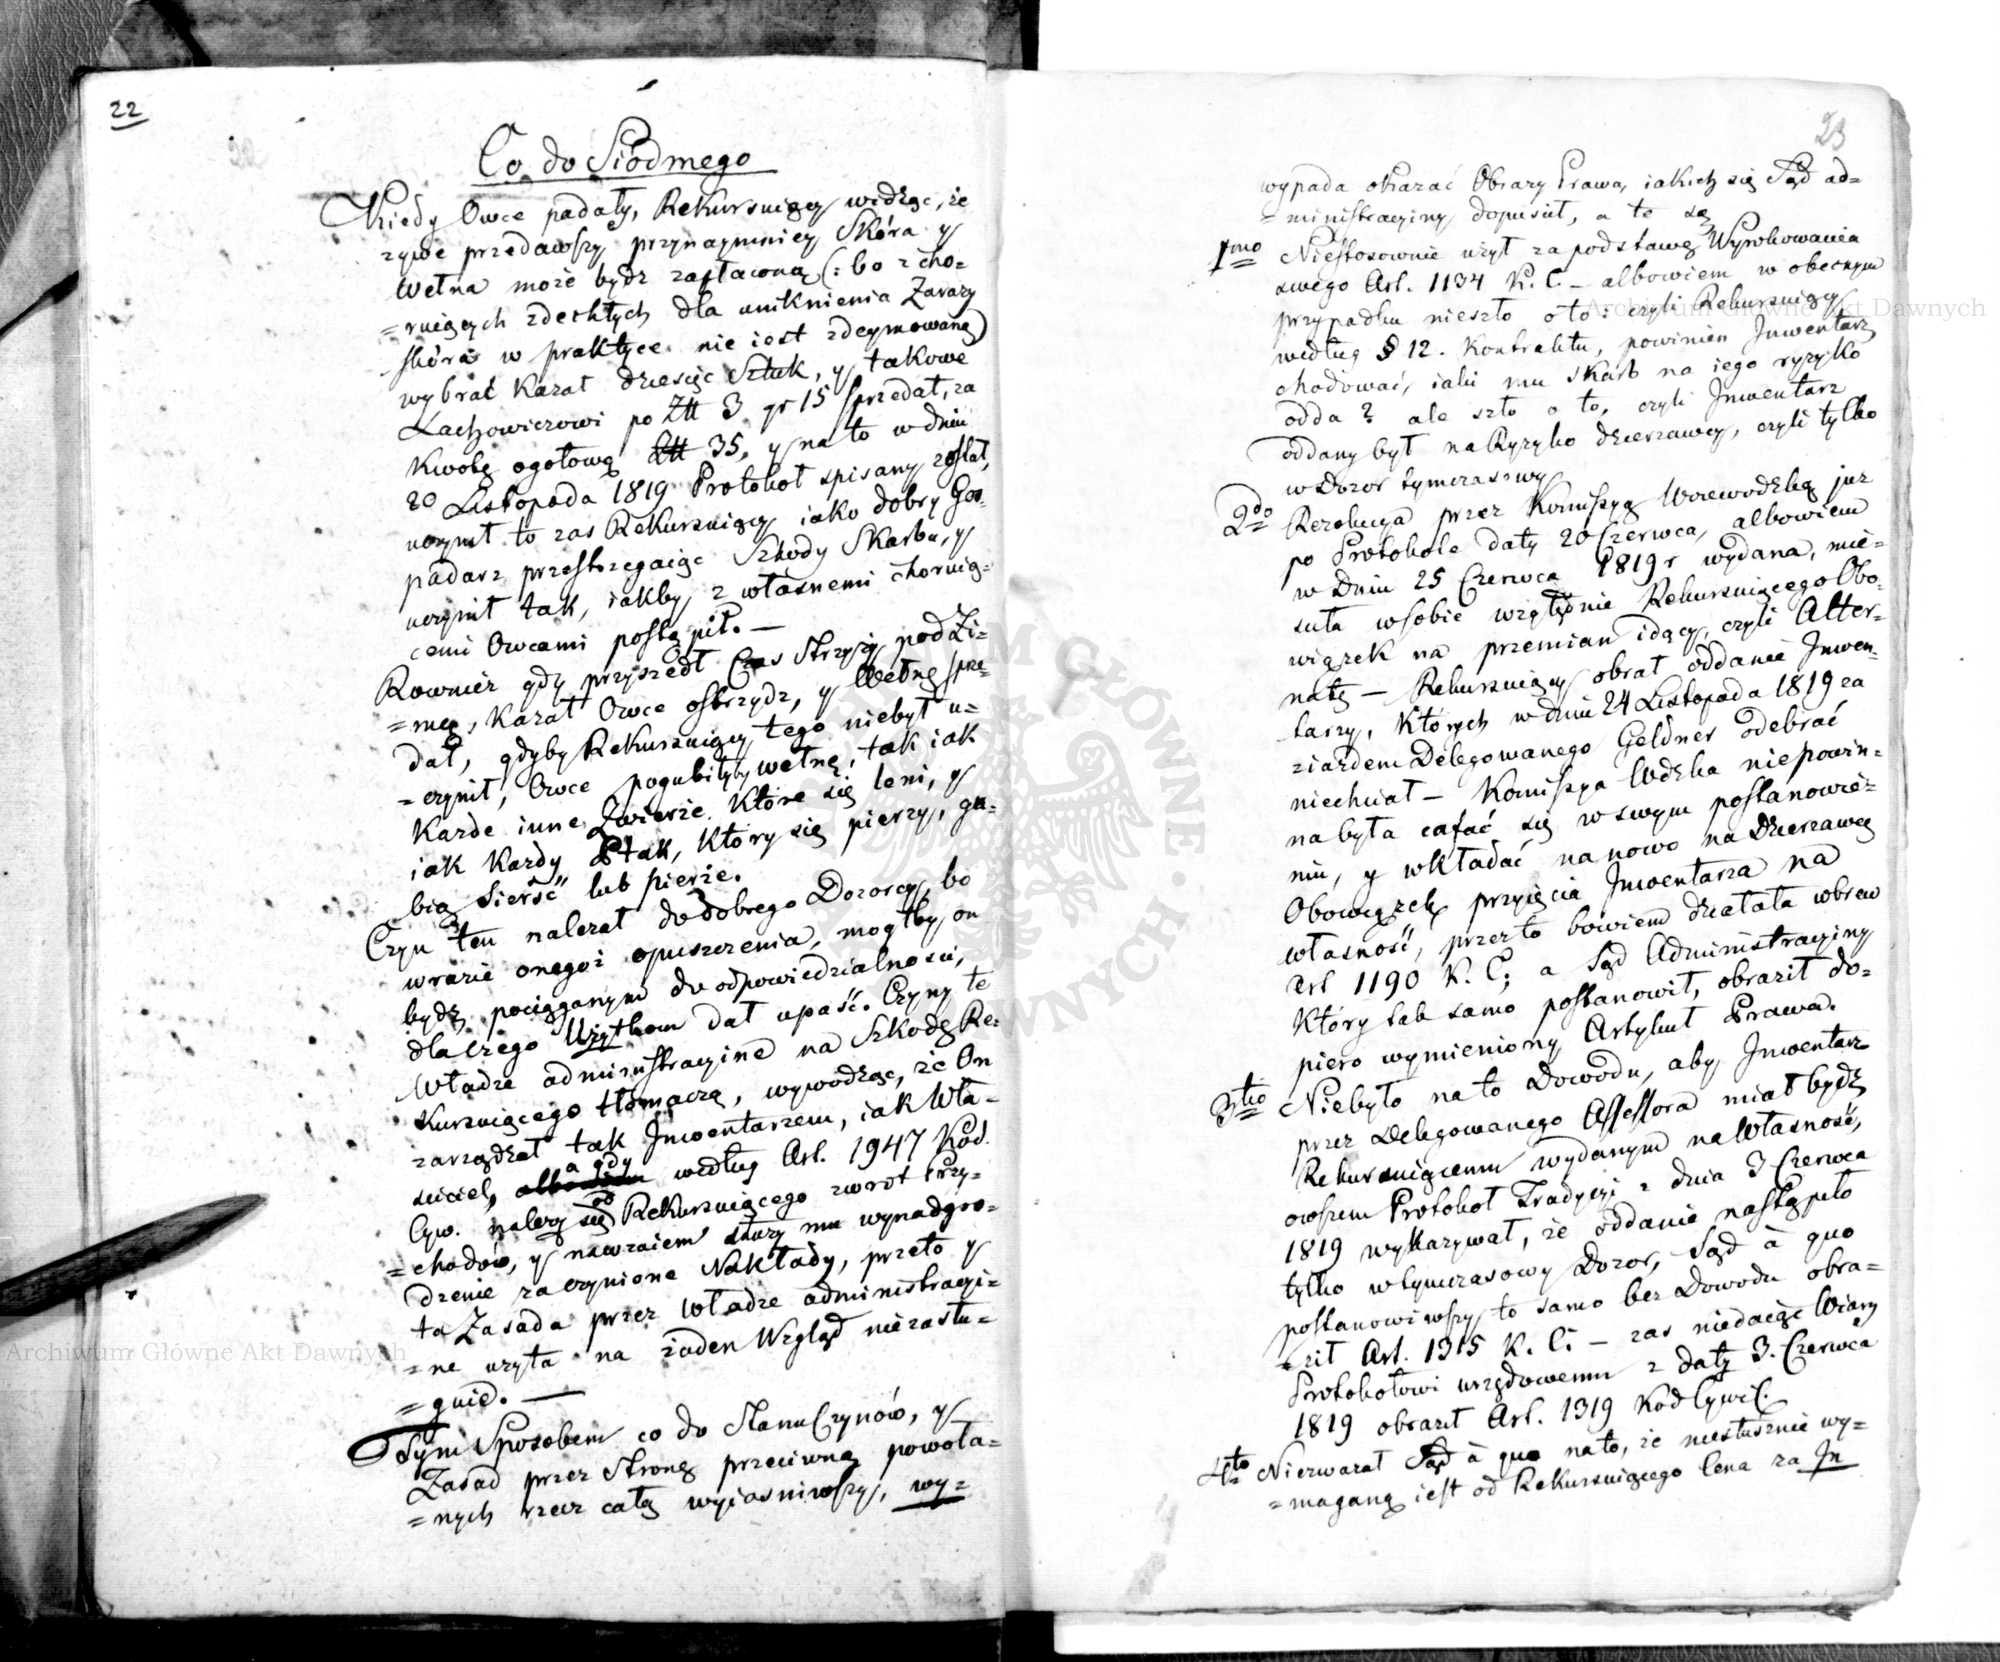 22
Co do Siódmego
Kiedy Owce padały, Rekursuiący widząc, że
żywe przedawszy przynaymniey Skóra y
Wełna może bydź zapłaconą (: bo z cho-
=ruiących zdechłych dla uniknienia Zarazy
skóra w praktyce nie iest zdeymowana)
wybrać Kazał dziesięć Sztuk, y takowe
Lachowiczowi po Złł 3 gr 15 sprzedał, za
Kwotę ogołową Złł 35, y na to w dniu
20 Listopada 1819 Protokoł spisany został,
uczynił to zas Rekursuiący iako dobry Gos-
padarz przestrzegaiąc Szkody Skarbu, y
uczynił tak, iakby z własnemi choruią-
cemi Owcami postąpił. —
Rownież gdy przyszedł Czas Strzyży pod Zi-
=mę, Kazał Owce ostrzydz, y Wełnę sprze-
dał, gdyby Rekursuiący tego niebył u-
=czynił, Owce pogubiłyby wełnę, tak iak
Każde inne Zwierze Które się leni, y
iak Każdy Ptak, Który się pierzy, gu-
bią Sierść lub pierze.
Czyn ten należał do dobrego Dozorcy, bo
w razie onegoż opuszczenia, mogłby on
bydz pociąganym do odpowiedzialności,
dlaczego Użytkom dał upaść. Czyny te
Władze administracyine na Szkodę Re-
kursuiącego tłómaczą, wywodząc, że On
zarządzał tak Inwentarzem, iak Wła-
ściciel, a gdy według Art. 1947 Kod.
Cyw. należy się od Rekursuiącego zwrot Przy-
=chodów, y nawzaiem służy mu wynadgro-
dzenie za czynione Nakłady, przeto y
ta Zasada przez Władze administracyi-
=ne użyta na żaden Wzgląd niezasłu-
=guie. —
Tym Sposobem co do Stanu Czynów, y
Zasad przez Stronę przeciwną powoła-
=nych rzecz całą wyiasniwszy, wy-
23
wypada okazać Obrazy Prawa, iakich się Sąd ad-
=ministracyiny dopuścił, a te są
1mo Niestosownie użył za podstawę Wyrokowania
swego Art. 1134 K. C. — albowiem w obecnym
przypadku nieszło o to: czyli Rekursuiący
według § 12. Kontraktu, powinien Inwentarz
chodować, iaki mu Skarb na iego ryzyko
odda? ale szło o to, czyli Inwentarz
oddany był na Ryzyko dzierzawcy, czyli tylko
w Dozor tymczasowy
2do Rezolucya przez Komissyą Woiewodzką już
po Protokole daty 20 Czerwca, albowiem
w Dniu 25 Czerwca 1819 r wydana, mie-
ściła w sobie względnie Rekursuiącego Obo-
wiązek na przemian idący, czyli Alter-
natę — Rekursuiący obrał oddanie Inwen-
tarzy, Których w dniu 24 Listopada 1819 za
ziazdem Delegowanego Geldner odebrać
niechciał — Komissya Wdzka niepowin-
na była cofać się w swym postanowie-
niu, y wkładać na nowo na Dzierzawcę
Obowiązek przyięcia Inwentarza na
własność, przez to bowiem działała wbrew
Art 1190 K. C; a Sąd Administracyiny
Który tak samo postanowił, obraził do-
piero wymieniony Artykuł Prawa.
3tio Niebyło na to Dowodu, aby Inwentarz
przez Delegowanego Assessora miał bydź
Rekursuiącemu wydanym na Własność,
owszem Protokoł Tradycyi z dnia 3 Czerwca
1819 wykazywał, że oddanie nastąpiło
tylko w tymczasowy Dozor, Sąd à quo
postanowiwszy to samo bez Dowodu obra-
=ził Art. 1315 K. C. — zas niedaiąc Wiary
Protokołowi urzędowemu z daty 3. Czerwca
1819 obraził Art. 1319 Kod Cywil.
4to Niezważał Sąd à quo na to, że niesłusznie wy-
=maganą iest od Rekursuiącego Cena za In
Archiwum Główne Akt Dawnych
Archiwum Główne Akt Dawnych